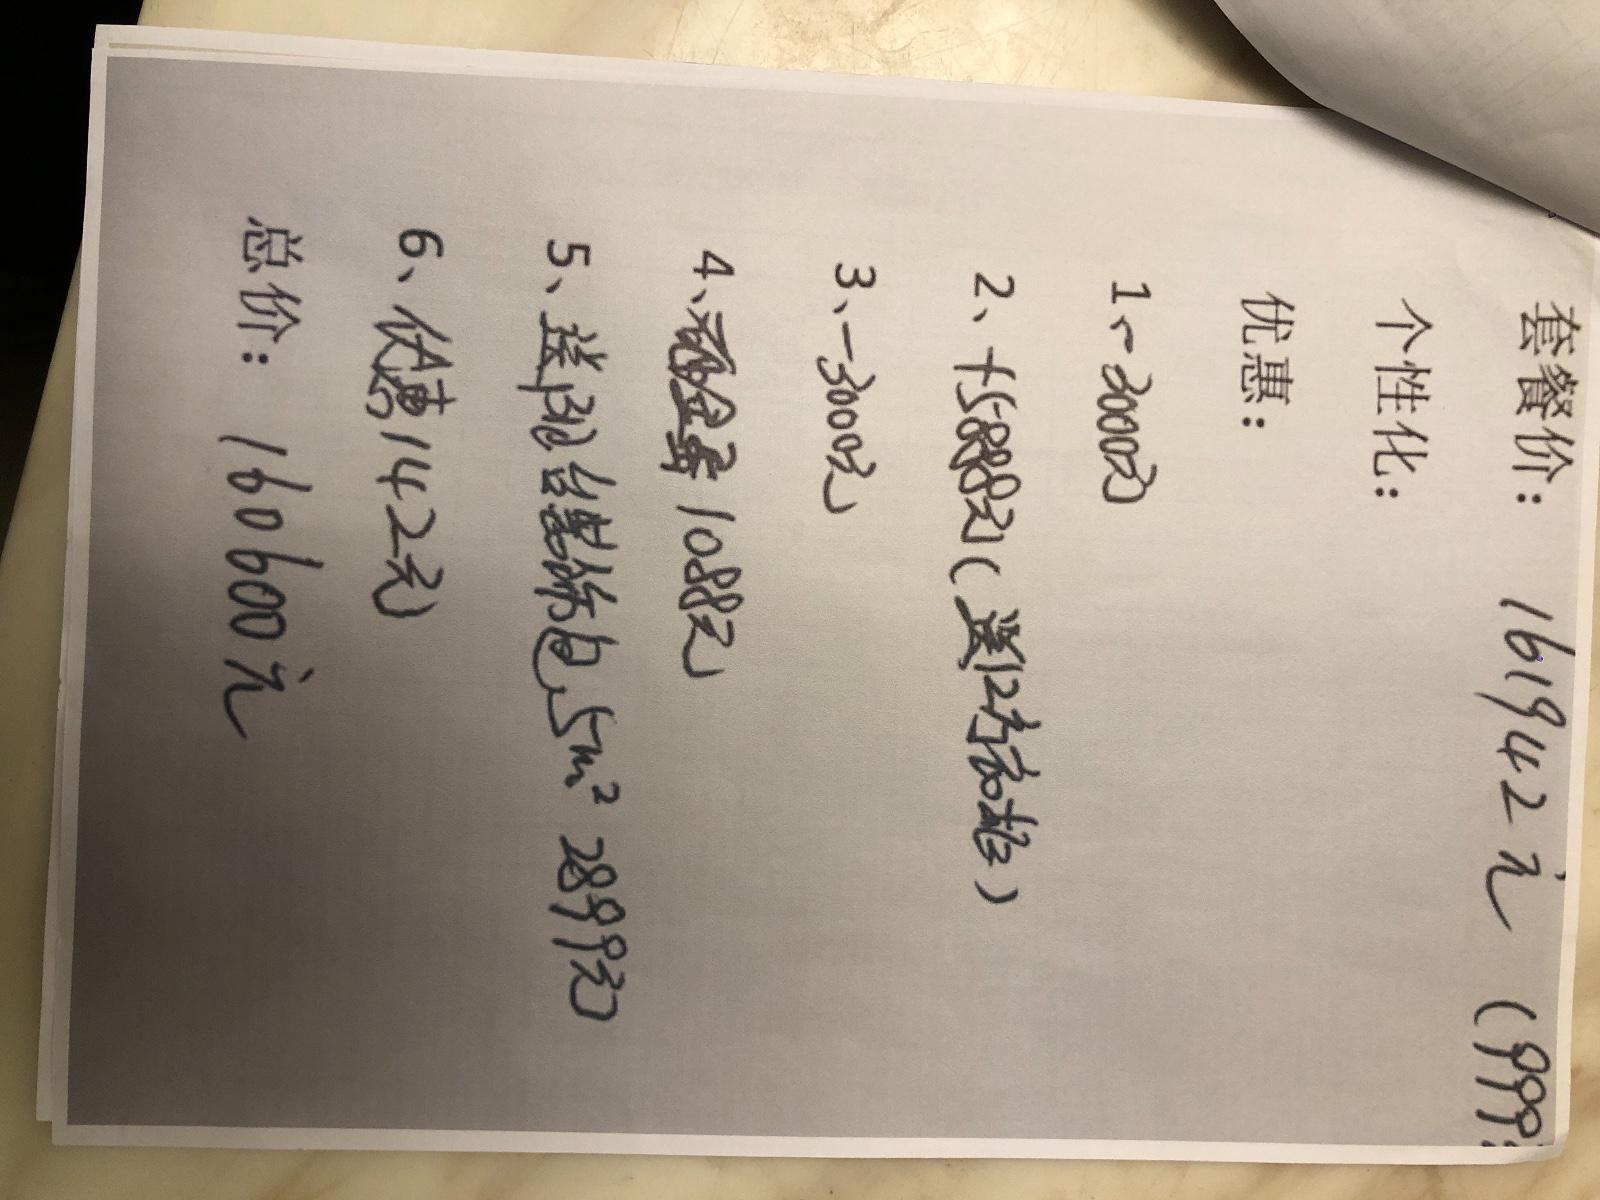 套餐价： 161942元 (999
个性化：
优惠：
1、-3000元
2、+5888元(送12 )
3、-3000元
4、砸金蛋1088元
5、送阳台装饰包,5m² 2899元
6、优惠142元
总价： 160600元